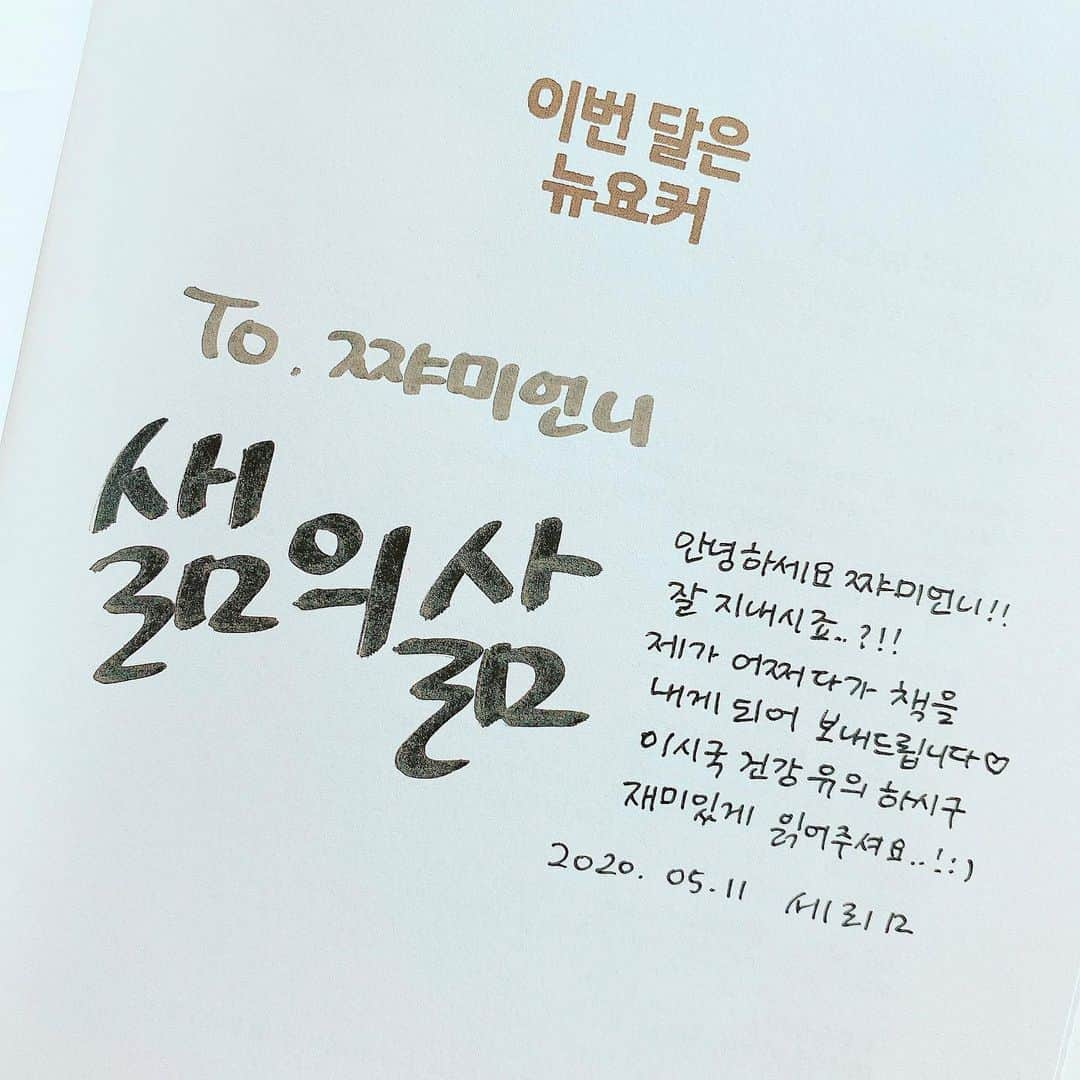 이번 달은
뉴요커
To. 쨔미언니
셂의 삶
안녕하세요 쨔미언니!!
잘 지내시죠..?!!
제가 어쩌다가 책을
내게 되어 보내드립니다♡
이시국 건강 유의 하시구
재미있게 읽어주셔요..!:)
2020. 05. 11 세리ㅁ